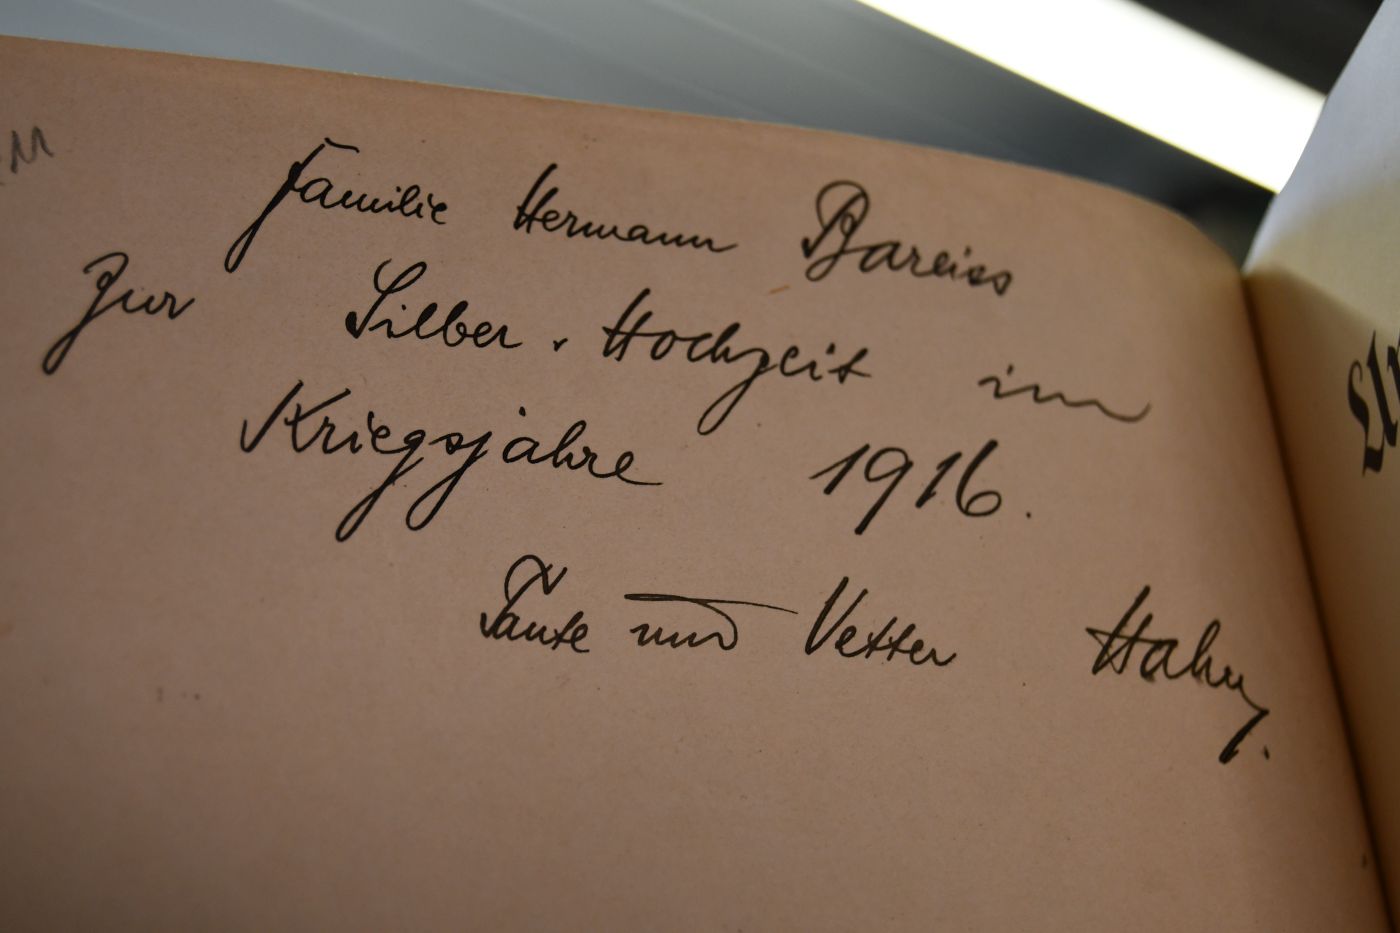 Familie Hermann Bareiss
Zur Silber-Hochzeit im
Kriegsjahre 1916.
Tante und Vetter Hahn.